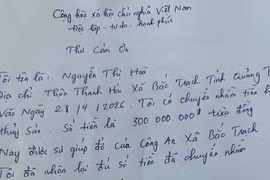 Cộng hòa xã hội chủ nghĩa Việt Nam
Độc lập - tự do - hạnh phúc
Thư Cảm Ơn
Tôi tên là: Nguyễn Thị Hoà
Địa chỉ Thôn Thanh Hóa Xã Bắc Trạch Tỉnh Quảng T
Vào Ngày 28/4/2026. Tôi có chuyển nhầm tiền
thủy Sản. Số tiền là 300.000.000đ triệu đồng
Nay được sự giúp đỡ của Công An Xã Bắc Trạch
Tôi đã nhận lại đủ số tiền đã chuyển nhầm